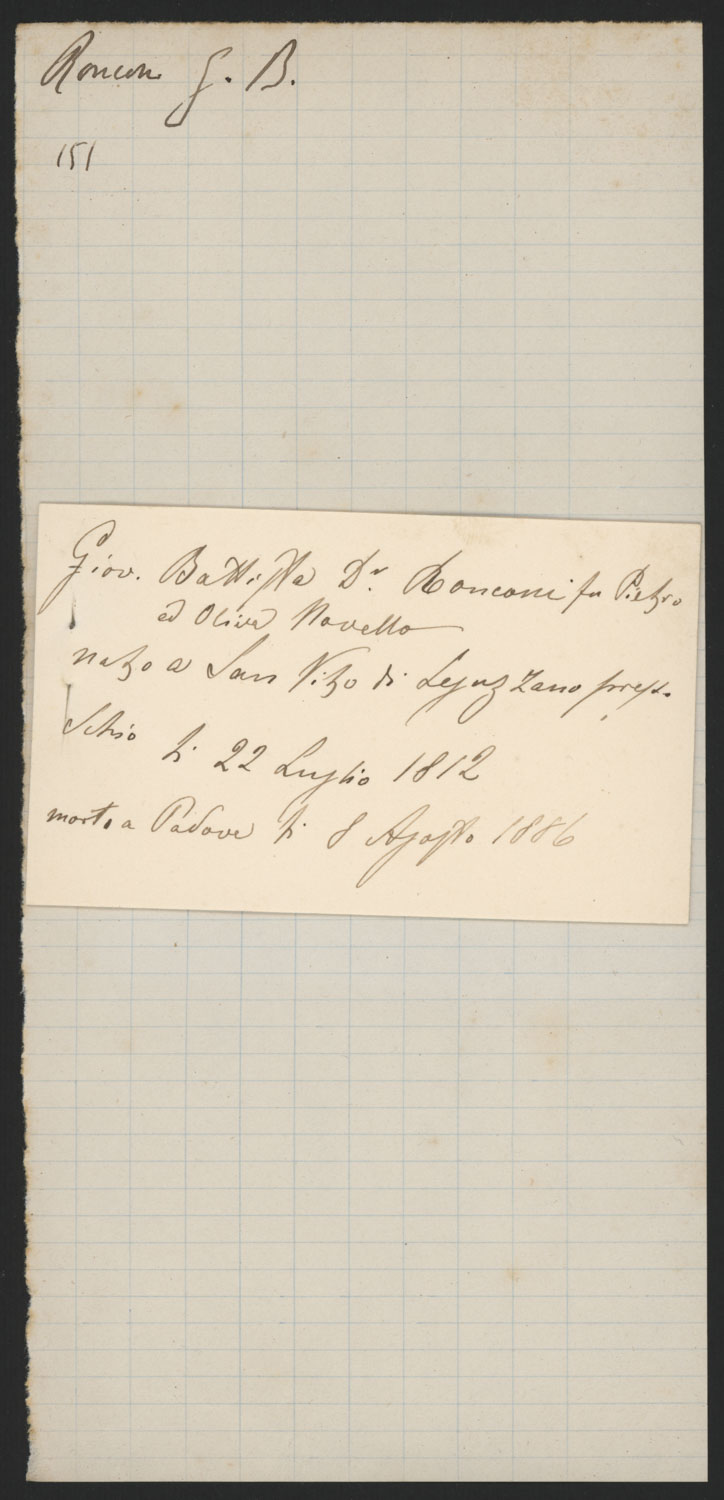 Ronconi G. B.
151
Giov. Battista Dr. Ronconi fu Pietro
ed Oliva Novello
nato a San Vito di Leguzzano presso
Schio li 22 Luglio 1812
morto a Padova li 8 Agosto 1886